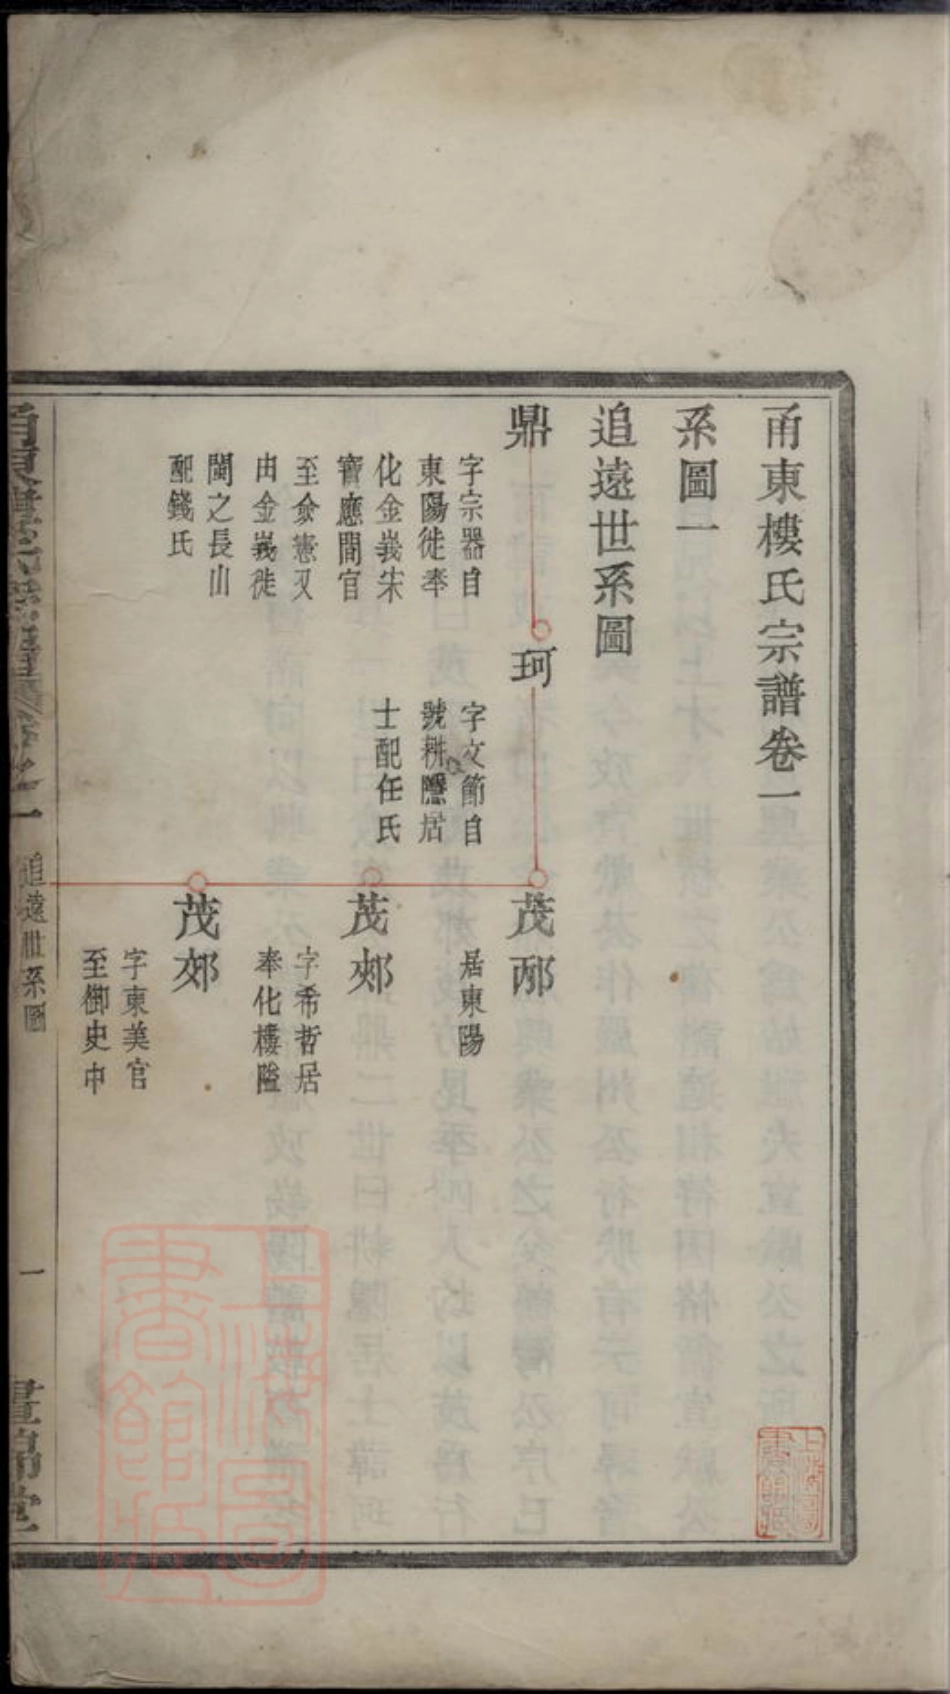 甬東樓氏宗譜卷一
系圖一
追遠世系圖
鼎
字宗器自
東陽徙奉
化金峩宋
寶應間官
至僉憲又
由金峩徙
閩之長山
配錢氏
珂
字文節自
號耕隱居
士配任氏
茂邴
居東陽
茂郟
字希哲居
奉化樓隘
茂郊
字東美官
至御史中
甬東樓氏宗譜卷之一
追遠世系圖
一
晝錦堂
上海圖書館藏